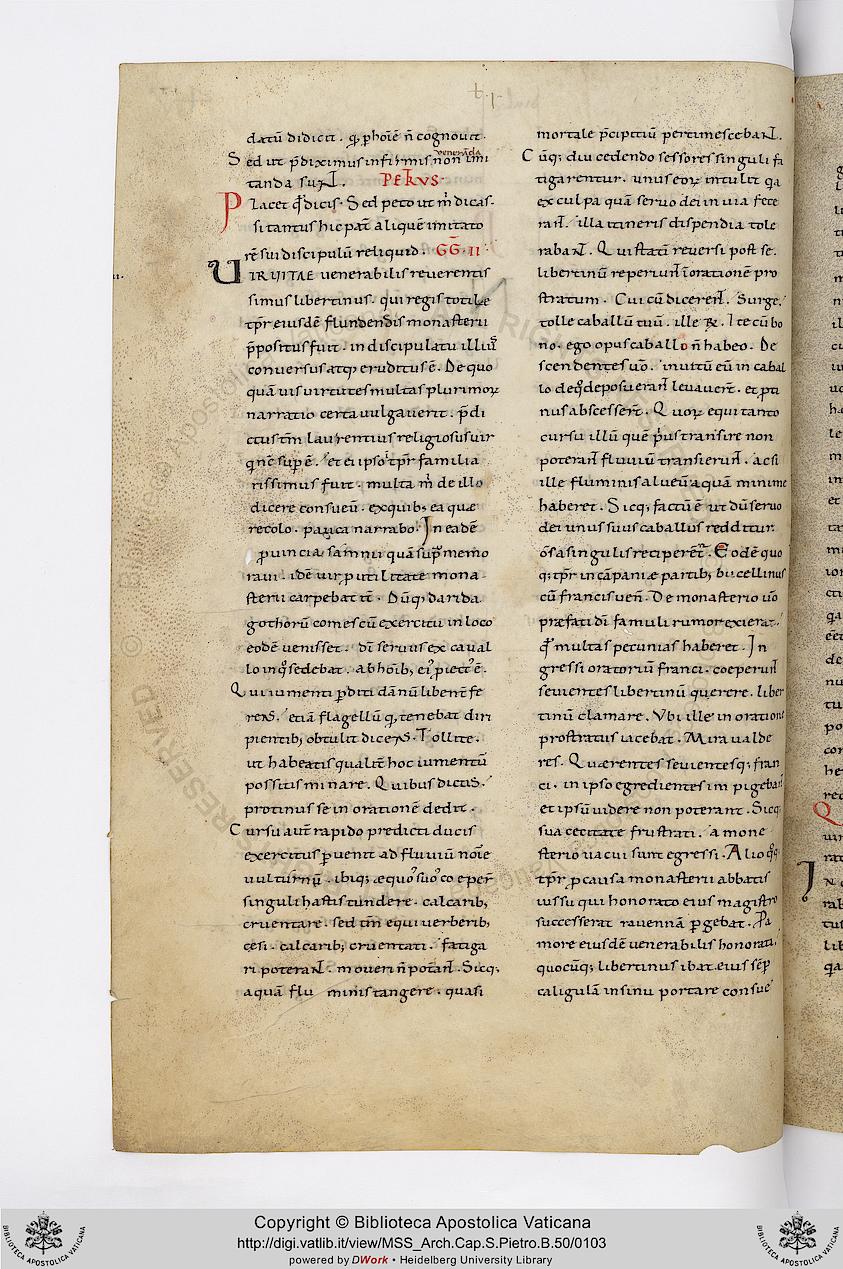 datū didicit. qͥ ꝑ hoīē n̄ cognouit.
Sed ut p̄diximus infirmis non imi
veneranda
tanda sunt. PETRVS.
Placet qđ dicis. Sed peto ut m̄ dicas.
si tantus hic pat̄ aliquē imitato
rē sui discipulū reliquid. GG. II
UIRIITAE venerabilis reuerentis
simus libertinus. qui regis totilę
tp̄r eiusdē fundendis monasterii
p̄positus fuit. in discipulatu illiuſ
conuersus atq; eruditus ē. De quo
quāuis uirtutes multas plurimoꝝ
narratio certa uulgauerit. p̄di
ctus tm̄ laurentius religiosus uir
qͥ nc̄ sup̄ ē. et ei ipso tp̄r familia
rissimus fuit. multa m̄ de illo
dicere consueū. ex quib; ea quę
recolo. pauca narrabo. In eadē
ꝓuincia samnii quā sup̄ memo
raui. idē uir ꝓ utilitate mona
sterii carpebat it̄. Dūq; darida
gothorū comes cū exercitu in loco
eodē uenisset. dī seruus ex cauall
lo in qͦ sedebat. ab hoīb; ei' ꝓiect' ē.
Qui iumenti ꝑditi dānū libent̄ fe
rens. etiā flagellū qͦ tenebat diri
pientib; obtulit dicens. Tollite.
ut habeatis qualit̄ hoc iumentū
possitis minare. Quibus dictis.
protinus se in orationē dedit.
Cursu aut̄ rapido predicti ducis
exercitus ꝑuenit ad fluuiū noīe
uulturnū. ibiq; æquoͦ suoͦ coeper̄
singuli hastis tundere. calcarib;
cruentare. sed tm̄ equi uerberib;
cęsi. calcarib; cruentati. fatiga
ri poterant. moueri n̄ poterant. Sicq;
aquā flu minis tangere. quasi
mortale p̄cipitiū pertimescebant.
Cūq; diu cedendo sessores singuli fa
tigarentur. unus eoꝝ intulit qa
ex culpa quā seruo dei in uia fece
rant. illa itineris dispendia tole
rabant. Qui statī reuersi post se.
libertinū reperiunt ī oratione pro
stratum. Cui cū dicerent. Surge.
tolle caballū tuū. ille &. Ite cū bo
no. ego opus caballo n̄ habeo. De
scendentes uͦo. inuitū eū in cabal
lo de qͦ deposuerant leuauer̄. et ꝓti
nus abscesser̄. Quoꝝ equi tanto
cursu illū quē p̄us transire non
poterant fluuiū transierunt. acsi
ille fluminis alueū aquā minime
haberet. Sicq; factū ē ut dū seruo
dei unus suus caballus redditur.
oīs a singulis reciperent̄. Eodē quo
q; tp̄r in cāpaniæ partib; buccellinus
cū francis uen̄. De monasterio uͦo
præfati dī famuli rumor exierat.
qđ multas pecunias haberet. In
gressi oratoriū franci. coeperunt
seuientes libertinū querere. liber
tinū clamare. Vbi ille in oratione
prostratus iacebat. Mira ualde
res. Quærentes seuientesq; fran
ci. in ipso egredientes impigebant
et ipsū uidere non poterant. Sicq;
sua cecitate frustrati. a mone
sterio uacui sunt egressi. Alio qͦq;
tp̄r ꝓ causa monasterii abbatis
iussu qui honorato eius magistro
successerat rauennā ꝑgebat. Pa
more eiusdē uenerabilis honorati.
quocūq; libertinus ibat. eius sēꝑ
caligulā in sinu portare consue
Copyright © Biblioteca Apostolica Vaticana
http://digi.vatlib.it/view/MSS_Arch.Cap.S.Pietro.B.50/0103
powered by DWork • Heidelberg University Library
BIBLIOTECA APOSTOLICA VATICANA
BIBLIOTECA APOSTOLICA VATICANA